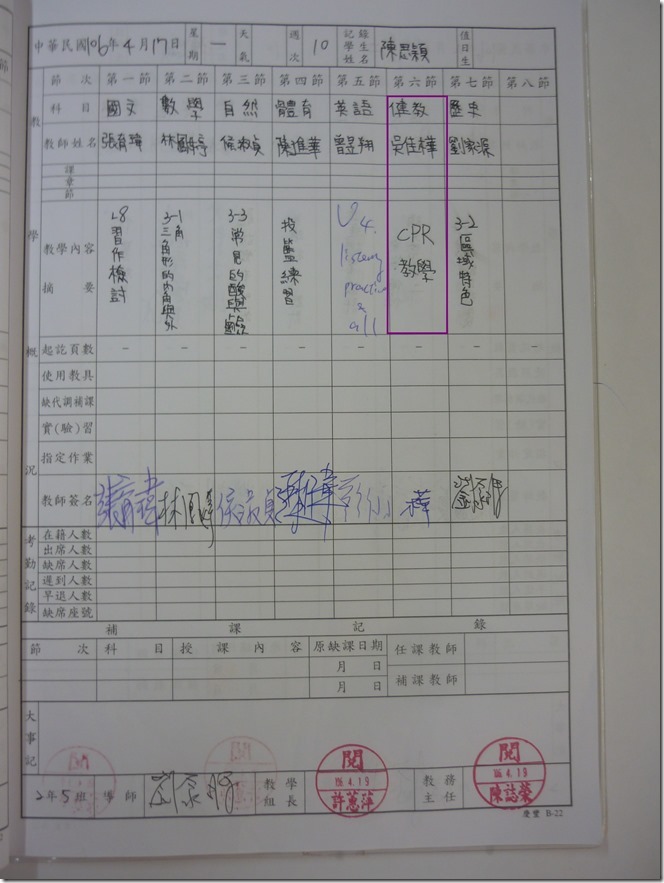 中華民國106年4月17日 星期 一 天氣 週次 10 記錄學生姓名 陳思穎 值日生
節次 第一節 第二節 第三節 第四節 第五節 第六節 第七節 第八節
科目 國文 數學 自然 體育 英語 健教 歷史
教師姓名 張育瑋 陳進華 曾昱翔 吳佳樺 劉家源
課
章
節
教學概況
教學內容摘要
L8習作檢討
3-1三角形的內角與外
3-3常見的酸與鹼
投籃練習
U4. listening practice & all
CPR教學
3-2區域特色
起訖頁數 – – – – – – – –
使用教具
缺代調補課
實(驗)習
指定作業
教師簽名 樺
考勤記錄
在籍人數
出席人數
缺席人數
遲到人數
早退人數
缺席座號
補課記錄
節次 科目 授課內容 原缺課日期 任課教師
月 日
月 日 補課教師
大事記
2年5班 導師 教學組長 閱 106.4.19 許蕙萍 教務主任 閱 106.4.19 陳誌榮
慶豐 B-22